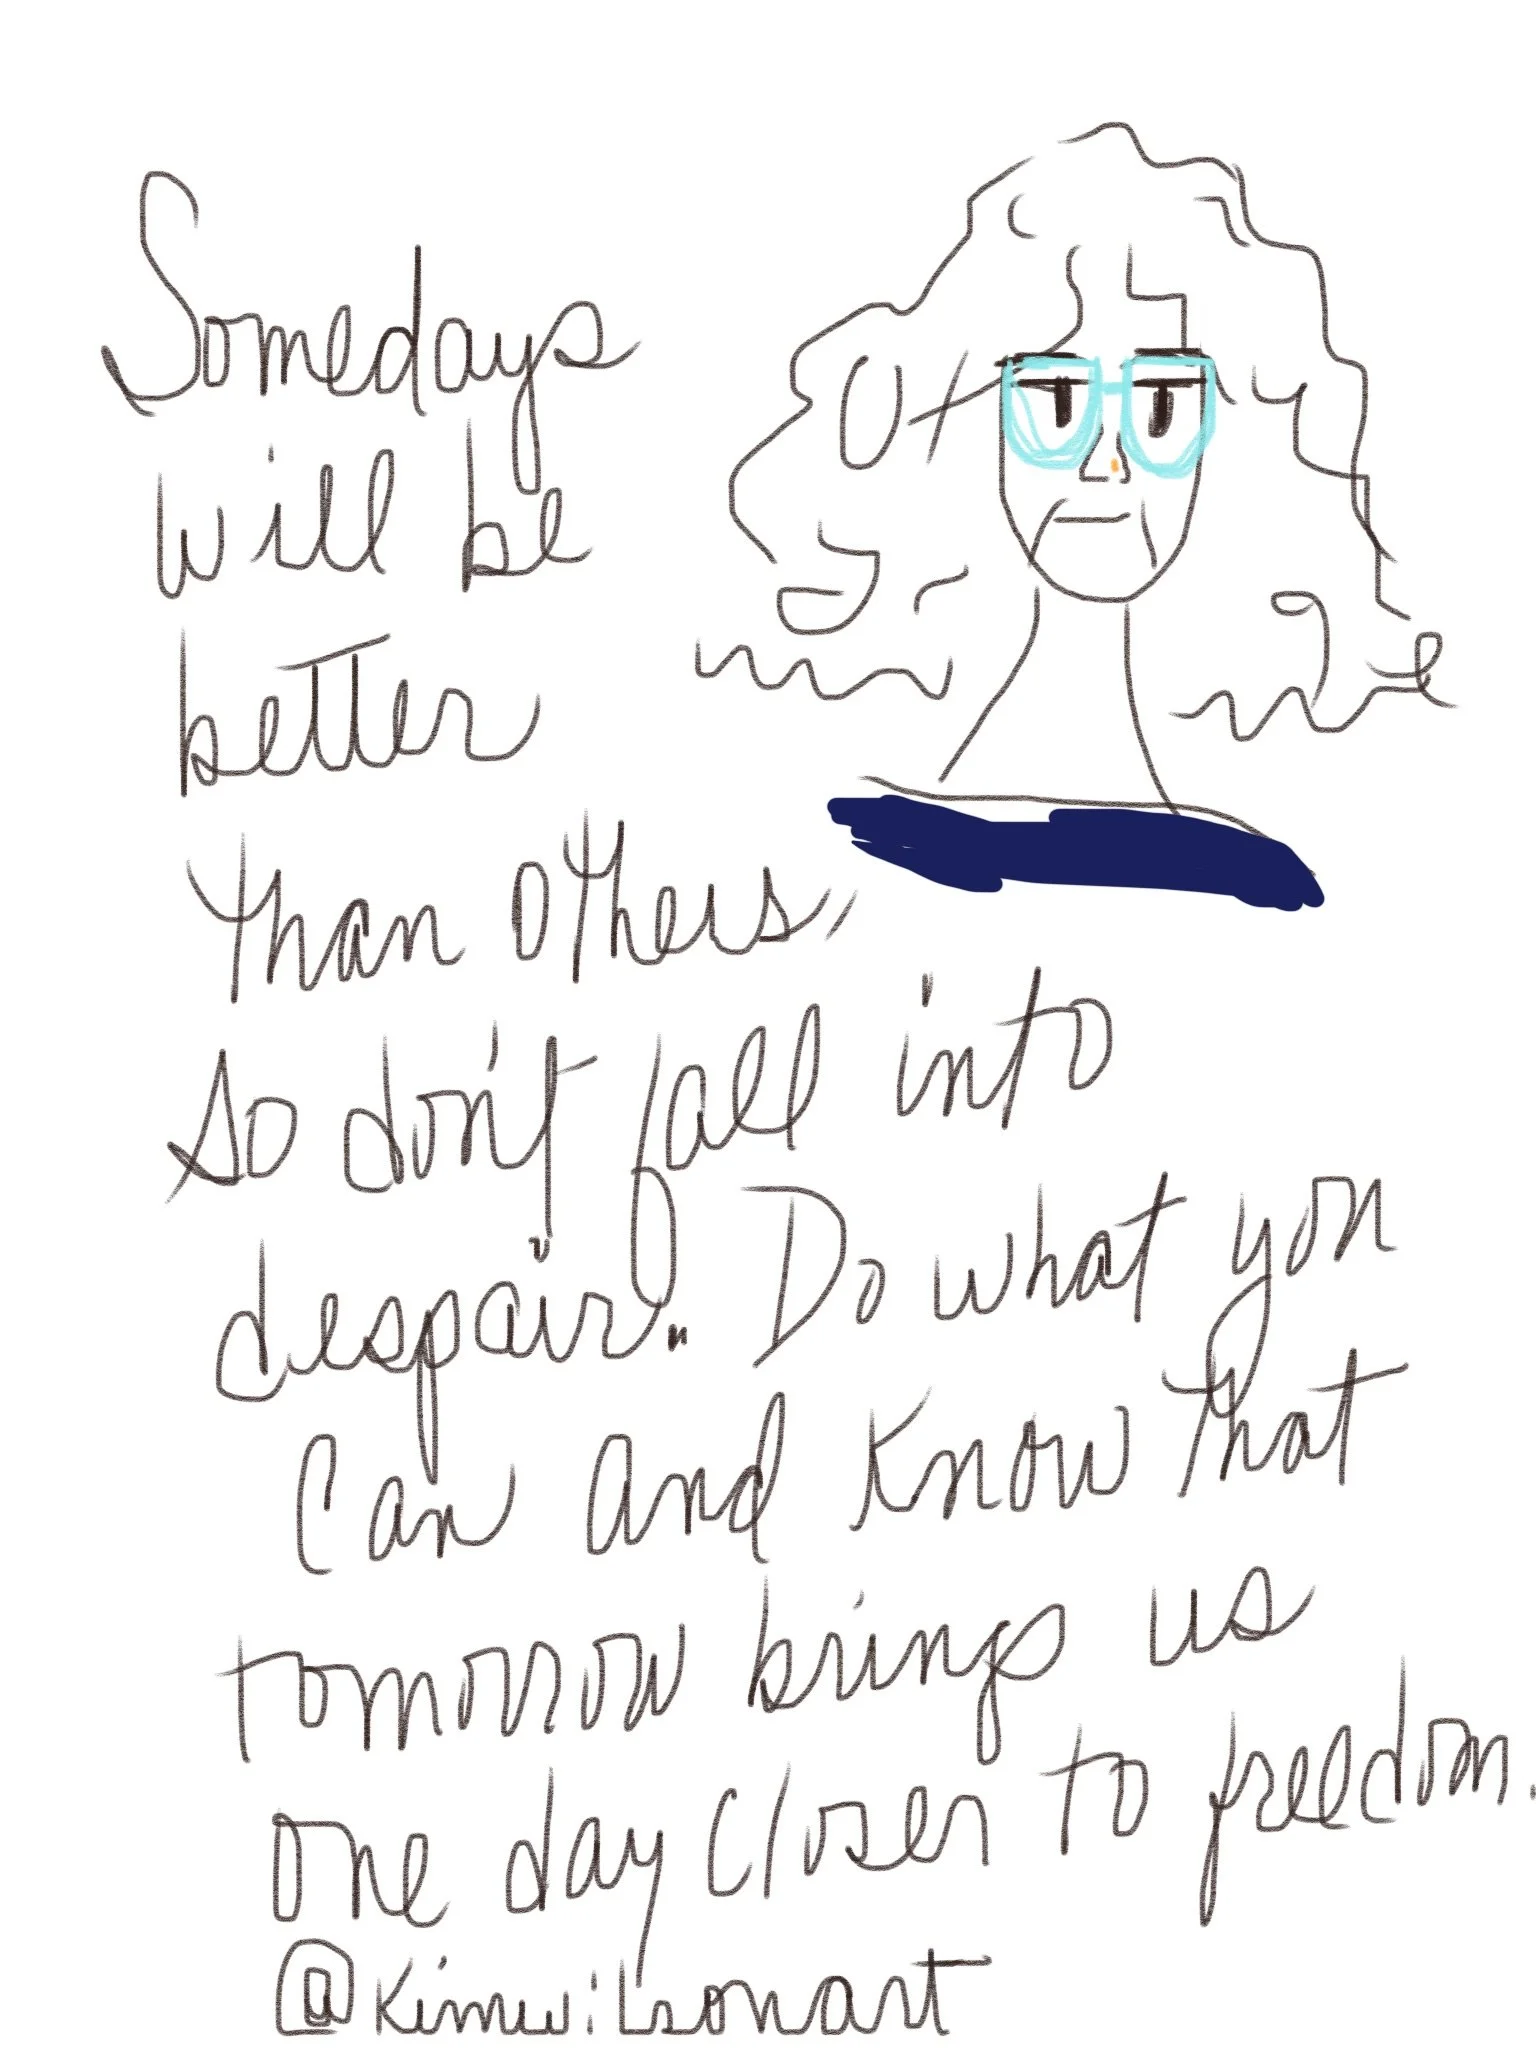 Somedays
will be
better
than others,
so don't fall into
despair. Do what you
can and know that
tomorrow brings us
one day closer to freedom.
@kimwilsonart